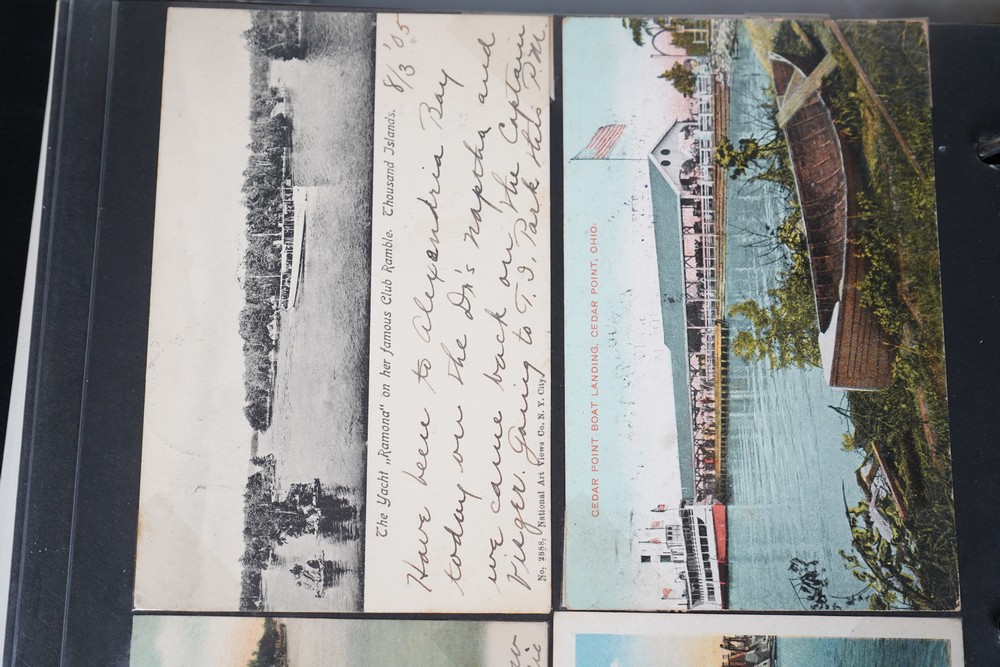 The Yacht „Ramona" on her famous Club Ramble. Thousand Islands. 8/3 '05
Have been to Alexandria Bay
today on the Dr's naptha and
we came back on the Captain
Visger. Going to T. I. Park this P.M
No. 2888, National Art Views Co. N. Y. City.
CEDAR POINT BOAT LANDING, CEDAR POINT, OHIO.